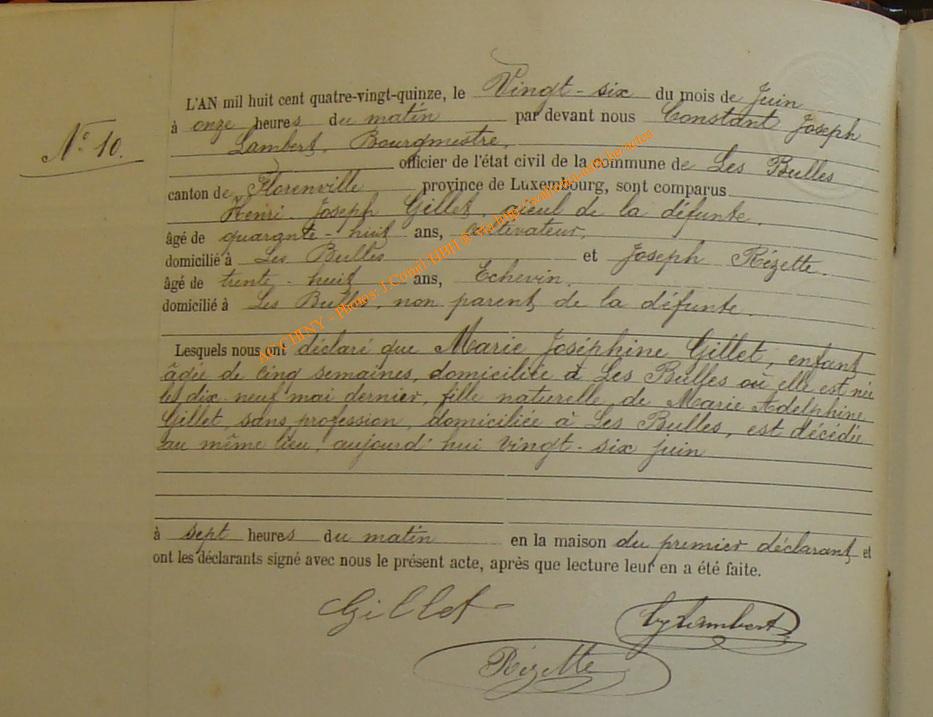 L'AN mil huit cent quatre-vingt-quinze, le Vingt-six du mois de Juin
à onze heures du matin par devant nous Constant Joseph
N° 10.
Lambert, Bourgmestre,
officier de l'état civil de la commune de Les Bulles
canton de Florenville province de Luxembourg, sont comparus
Henri Joseph Gillet, aieul de la défunte,
âgé de quarante-huit ans, cultivateur,
domicilié à Les Bulles et Joseph Rézette.
âgé de trente-huit ans, Echevin,
domicilié à Les Bulles, non parent de la défunte.
Lesquels nous ont déclaré que Marie Joséphine Gillet, enfant
âgée de cinq semaines, domiciliée à Les Bulles où elle est née
le dix-neuf mai dernier, fille naturelle de Marie Adelphine
Gillet, sans profession, domiciliée à Les Bulles, est décédée
au même lieu, aujourd'hui vingt-six juin
à sept heures du matin en la maison du premier déclarant et
ont les déclarants signé avec nous le présent acte, après que lecture leur en a été faite.
Gillet
Lambert
Rézette